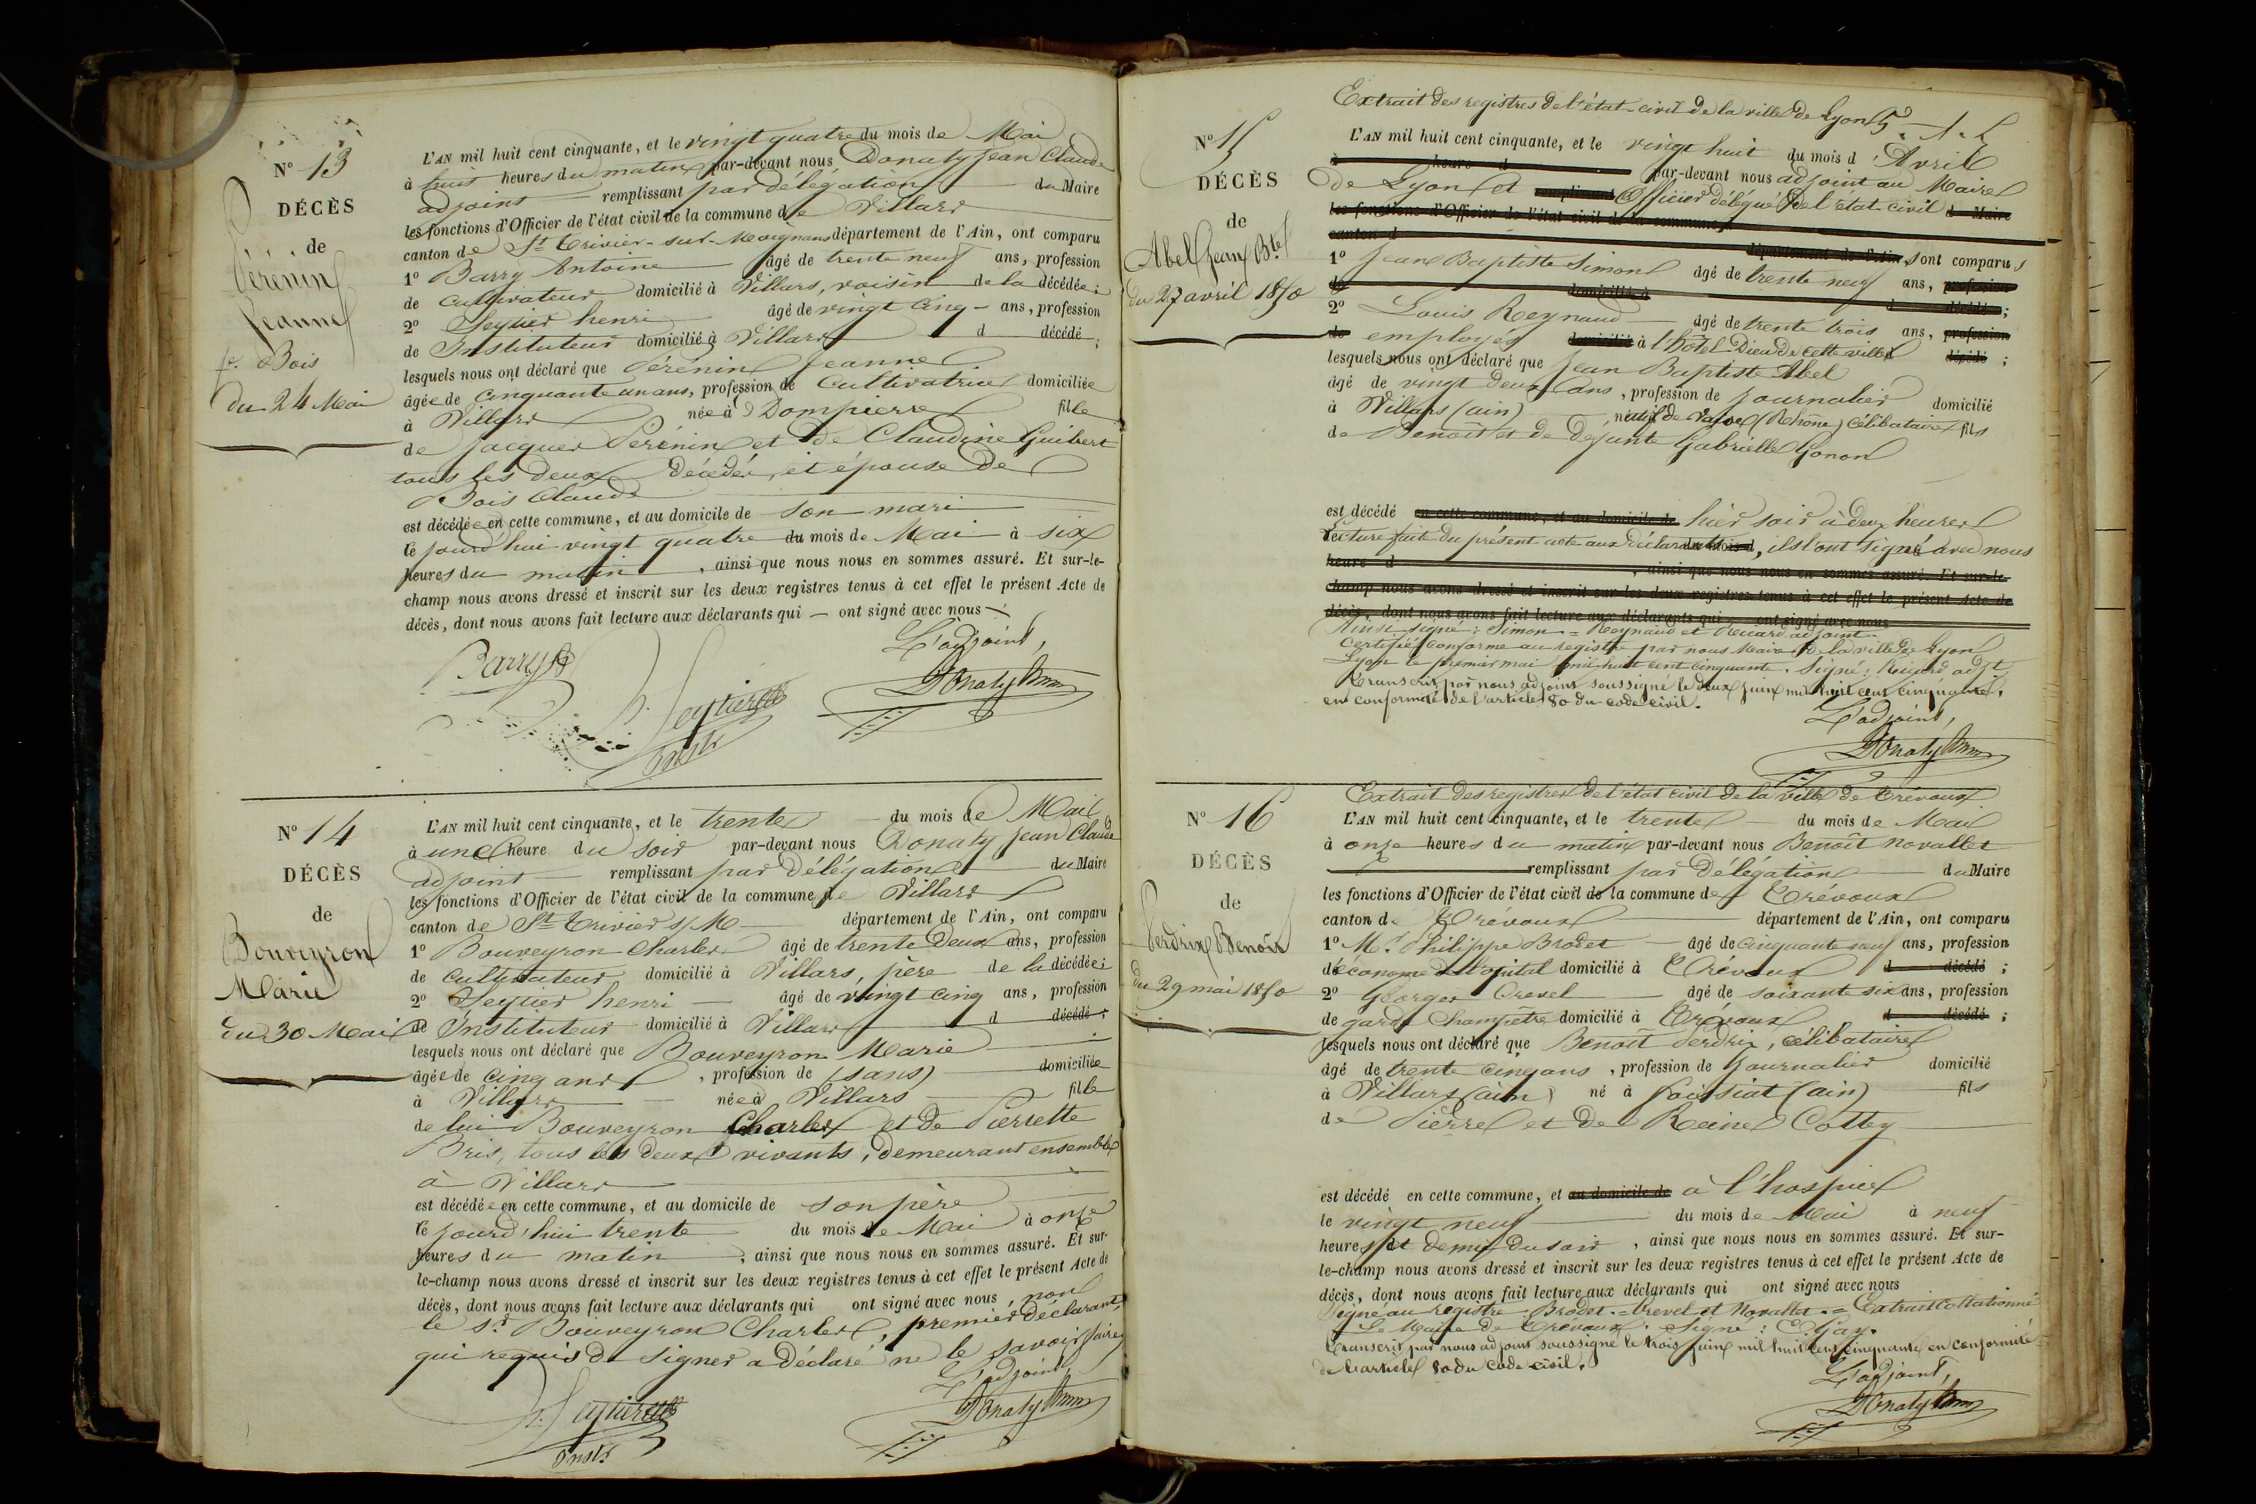 N° 13
DÉCÈS
de
Pérénin
Jeanne
fe. Bois
du 24 Mai
L'AN mil huit cent cinquante, et le vingt quatre du mois de Mai
à huit heures du matin par-devant nous Donaty Jean Claude
adjoint remplissant par délégation du Maire
les fonctions d'Officier de l'état civil de la commune de Villars
canton de St Trivier-sur-Moignans département de l'Ain, ont comparu
1° Barry Antoine âgé de trente neuf ans, profession
de cultivateur domicilié à Villars, voisin de la décédée ;
2° Seytier henri âgé de vingt cinq ans, profession
de Instituteur domicilié à Villars d décédé ;
lesquels nous ont déclaré que Pérénin Jeanne
âgée de cinquante un ans, profession de cultivatrice domiciliée
à Villars née à Dompierre fille
de Jacques Pérénin et de Claudine Guibert
tous les deux décédés, et épouse de
Bois Claude
est décédée en cette commune, et au domicile de son mari
le jourd'hui vingt quatre du mois de Mai à six
heures du matin, ainsi que nous nous en sommes assuré. Et sur-le-
champ nous avons dressé et inscrit sur les deux registres tenus à cet effet le présent Acte de
décès, dont nous avons fait lecture aux déclarants qui — ont signé avec nous
L'adjoint,
Barry
h. Seytier
Donaty
Instr
N° 14
DÉCÈS
de
Bouveyron
Marie
du 30 Mai
L'AN mil huit cent cinquante, et le trente du mois de Mai
à une heure du soir par-devant nous Donaty Jean Claude
adjoint remplissant par délégation du Maire
les fonctions d'Officier de l'état civil de la commune de Villars
canton de St Trivier s/M département de l'Ain, ont comparu
1° Bouveyron Charles âgé de trente deux ans, profession
de cultivateur domicilié à Villars, père de la décédée ;
2° Seytier henri âgé de vingt cinq ans, profession
de Instituteur domicilié à Villars d décédé ;
lesquels nous ont déclaré que Bouveyron Marie
âgée de cinq ans, profession de (sans) domiciliée
à Villars née à Villars fille
de lui Bouveyron Charles et de Pierrette
Bris, tous les deux vivants, demeurant ensemble
à Villars
est décédée en cette commune, et au domicile de son père
le jourd'hui trente du mois de Mai à onze
heures du matin, ainsi que nous nous en sommes assuré. Et sur-
le-champ nous avons dressé et inscrit sur les deux registres tenus à cet effet le présent Acte de
décès, dont nous avons fait lecture aux déclarants qui ont signé avec nous, non
le sr Bouveyron Charles, premier déclarant,
qui requis de signer a déclaré ne le savoir faire
L'adjoint,
h. Seytier
Donaty
Instr
Extrait des registres de l'état-civil de la ville de Lyon
N° 15
DÉCÈS
de
Abel Jean Bte
du 27 avril 1850
L'AN mil huit cent cinquante, et le vingt huit du mois d'Avril
à heure d par-devant nous adjoint au Maire
de Lyon et remplissant Officier délégué de l'état-civil d Maire
les fonctions d'Officier de l'état civil de la commune
canton d département de l'Ain, sont comparus
1° Jean Baptiste Simon âgé de trente neuf ans, profession
de domicilié à d décédé ;
2° Louis Reynaud âgé de trente trois ans, profession
de employés domicilié à l'hôtel-Dieu de cette ville décédé ;
lesquels nous ont déclaré que Jean Baptiste Abel
âgé de vingt deux ans, profession de journalier domicilié
à Villars (ain) (Rhône) célibataire fils
de Benoît et de défunte Gabrielle Gonon
est décédé en cette commune, et au domicile de hier soir à deux heures
Lecture faite du présent acte aux déclarants, ils l'ont signé avec nous
heure d, ainsi que nous nous en sommes assuré. Et sur-le-
champ nous avons dressé et inscrit sur les deux registres tenus à cet effet le présent Acte de
décès, dont nous avons fait lecture aux déclarants qui ont signé avec nous
Ainsi signé : Simon = Reynaud et Ricard adjoint
Certifié conforme au registre par nous Maire de la ville de Lyon
Lyon le premier mai mil huit cent cinquante. Signé : Ricard adjt
Transcrit par nous adjoint soussigné le deux juin mil huit cent cinquante,
en conformité de l'article 80 du code civil.
L'adjoint,
Donaty
Extrait des registres de l'état civil de la ville de Trévoux
N° 16
DÉCÈS
de
Perdrix Benoît
du 29 mai 1850
L'AN mil huit cent cinquante, et le trente du mois de Mai
à onze heures du matin par-devant nous Benoît Novallet
remplissant par délégation du Maire
les fonctions d'Officier de l'état civil de la commune de Trévoux
canton de Trévoux département de l'Ain, ont comparu
1° Mr. Philippe Brodet âgé de cinquante neuf ans, profession
d'économe de l'hopital domicilié à Trévoux d décédé ;
2° Georges Crevel âgé de soixante six ans, profession
de garde Champêtre domicilié à Trévoux d décédé ;
lesquels nous ont déclaré que Benoît Perdrix, célibataire
âgé de trente cinq ans, profession de Journalier domicilié
à Villars (ain) né à Foissiat (ain) fils
de Pierre et de Reine Cottey
est décédé en cette commune, et au domicile de à l'hospice
le vingt neuf du mois de Mai à neuf
heures et demie du soir, ainsi que nous nous en sommes assuré. Et sur-
le-champ nous avons dressé et inscrit sur les deux registres tenus à cet effet le présent Acte de
décès, dont nous avons fait lecture aux déclarants qui ont signé avec nous
Signé au registre : Brodet. = Crevel et Novallet. = Extrait Collationné
Le Maire de Trévoux. Signé : C. Gay.
Transcrit par nous adjoint soussigné le trois juin mil huit cent cinquante en conformité
de l'article 80 du Code civil.
L'adjoint,
Donaty